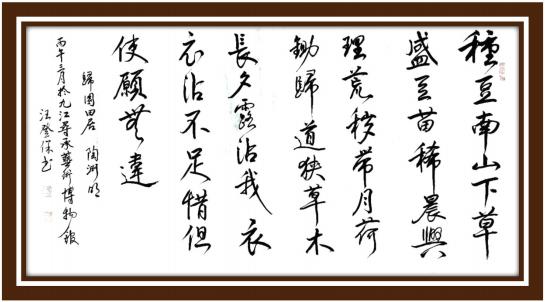 種豆南山下草
盛豆苗稀晨興
理荒穢帶月荷
鋤歸道狹草木
長夕露沾我衣
衣沾不足惜但
使願無違
歸園田居 陶渊明
丙午三月於九江尋承藝術博物館
汪登保书